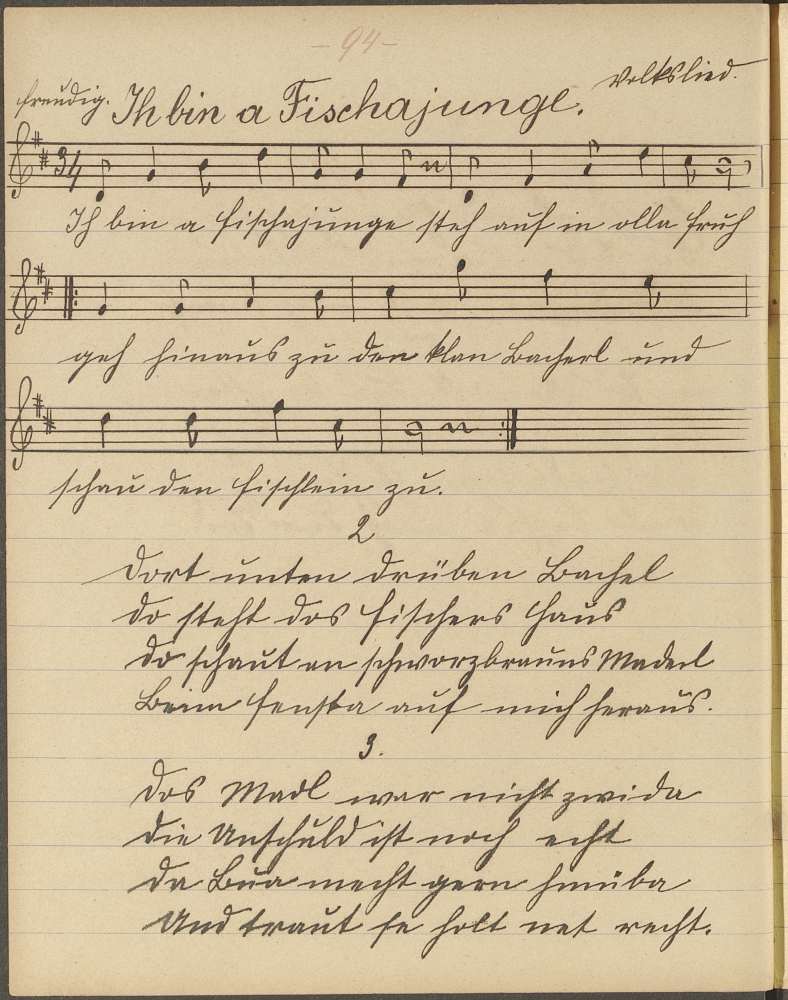 - 94 -
freudig. Ih bin a Fischajunge. Volkslied.
3/4
Ih bin a Fischajunge steh auf in olla fruh
geh hinaus zu den klan Bacherl und
schau den Fischlein zu.
2
Dort unten drüben Bachel
do steht dos Fischers Haus
do schaut an schworzbrauns Maderl
Beim Fensta auf mich heraus.
3.
Dos Madl war nicht zwida
die Unschuld ist noch echt
da Bua mecht gern hinüba
Und traut se holt net recht.